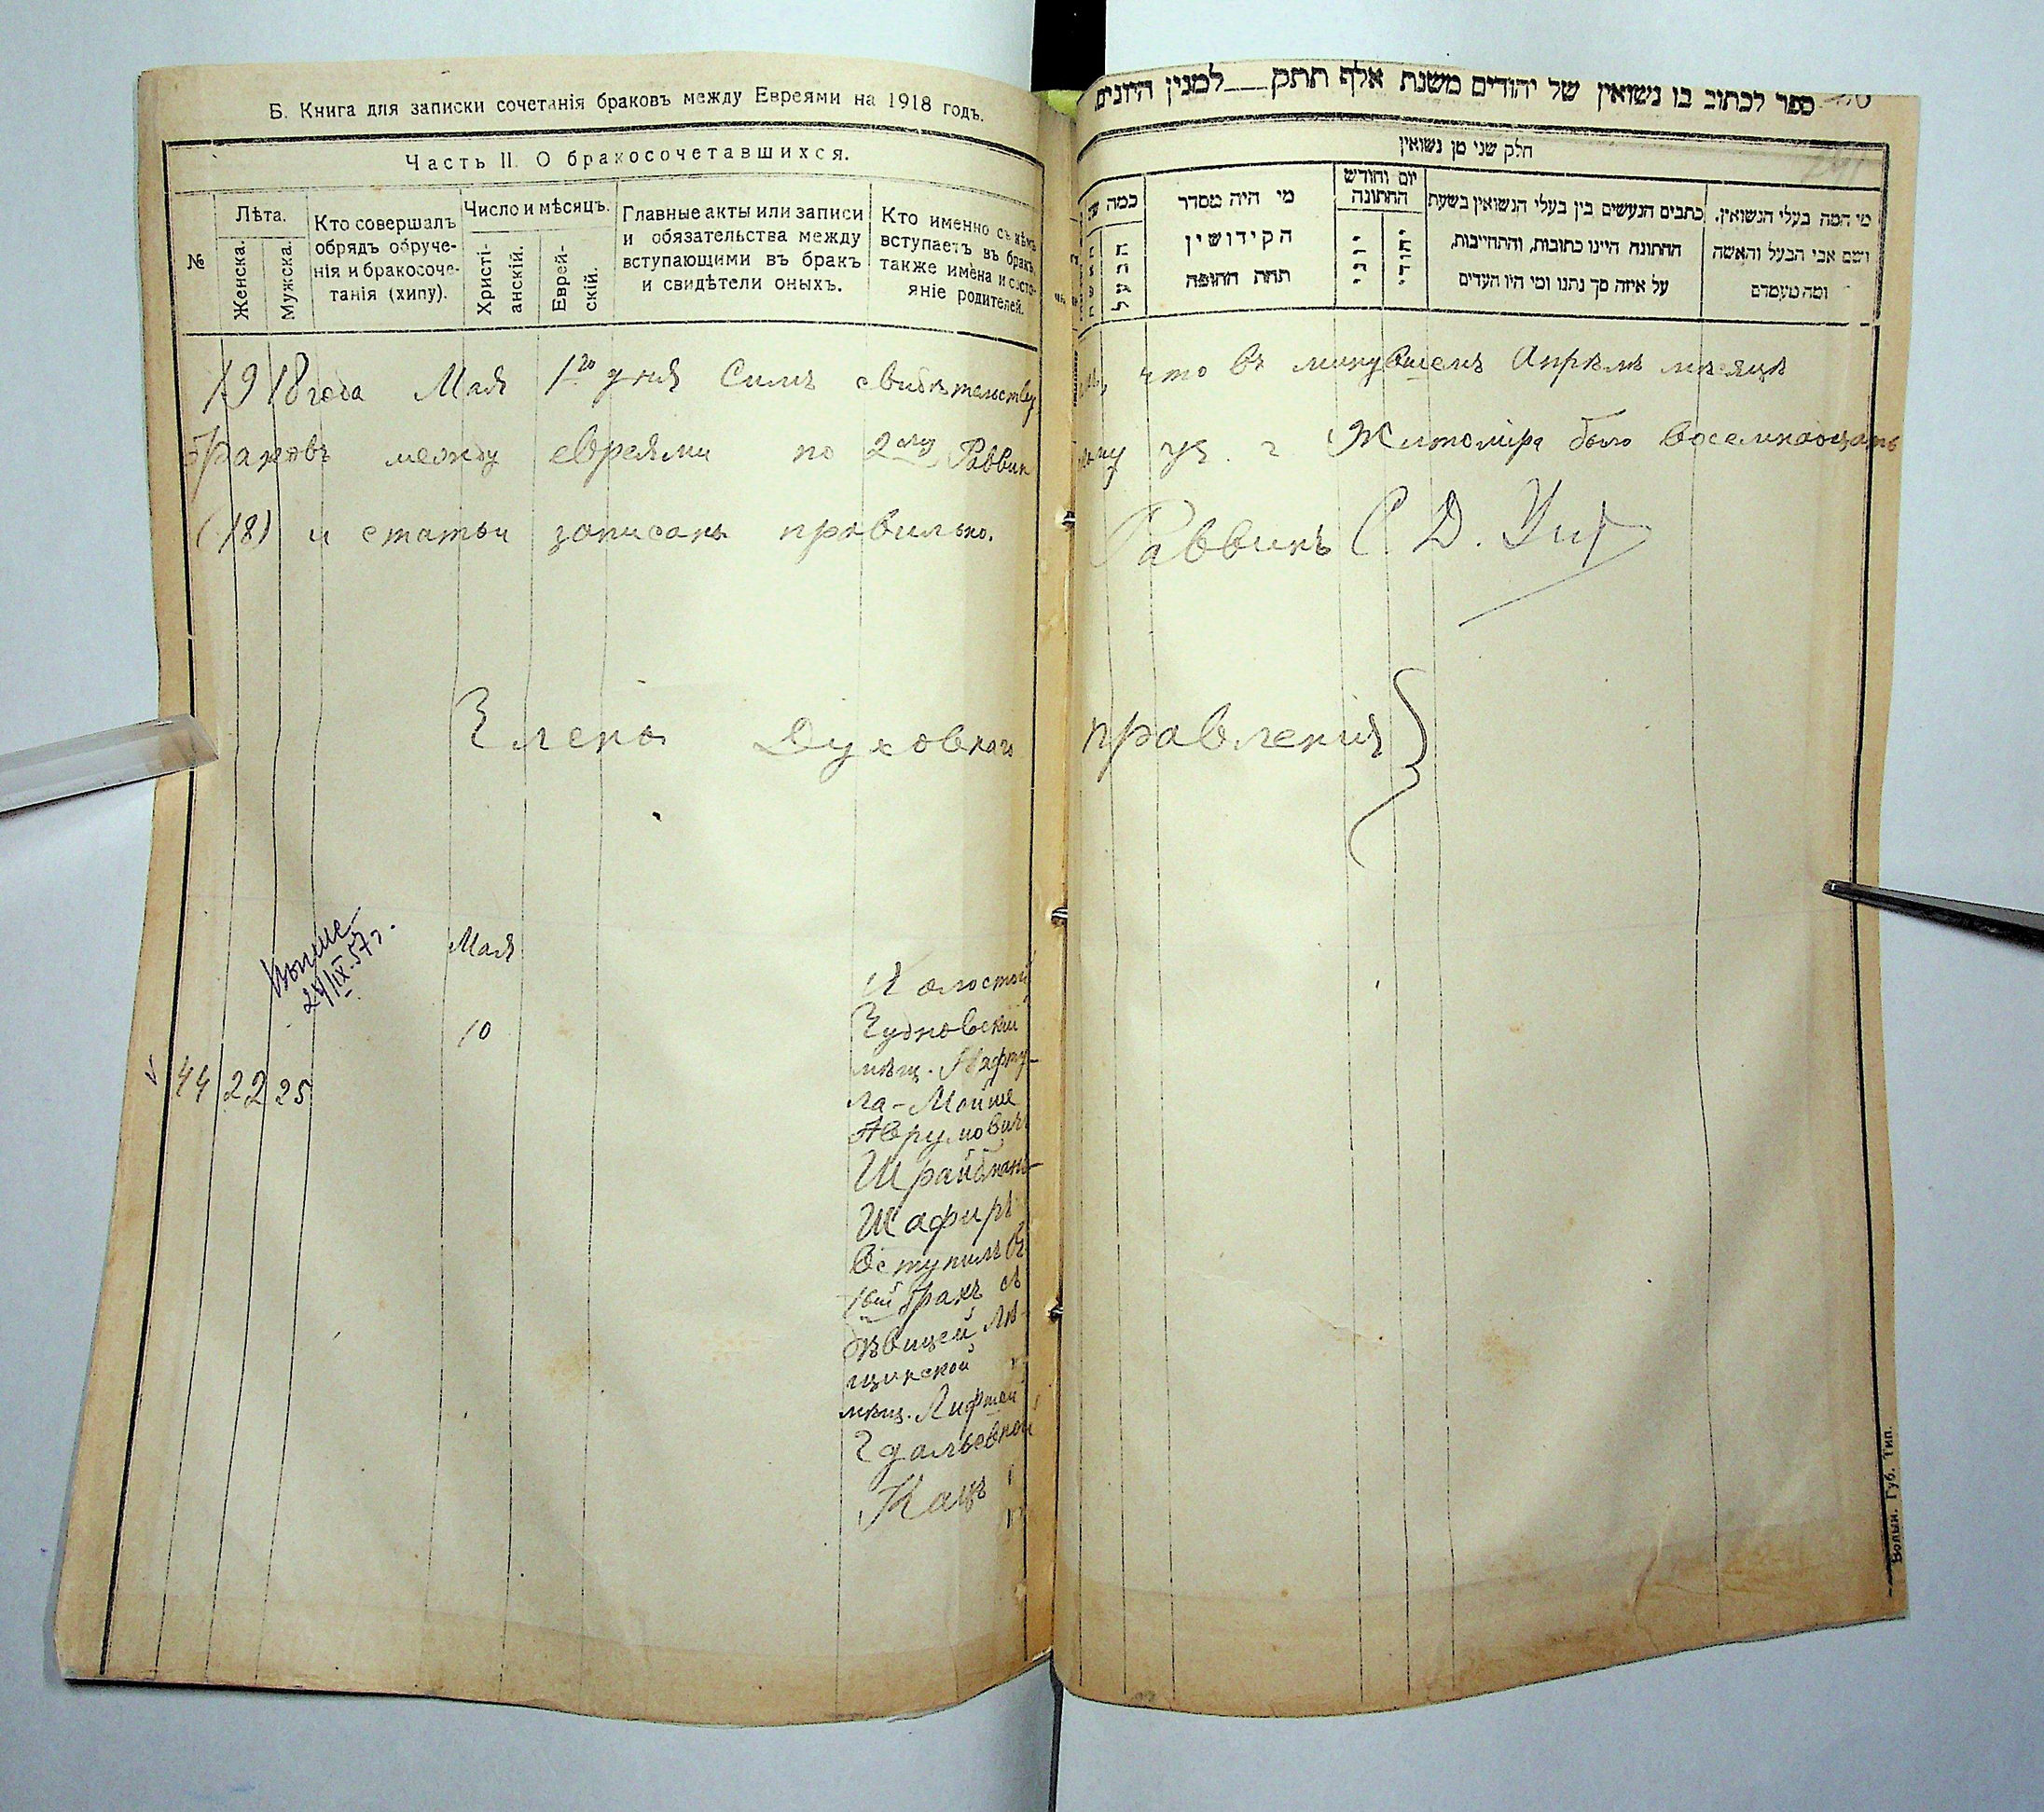 Б. Книга для записки сочетанія браковъ между Евреями на 1918 годъ.
Часть II. О бракосочетавшихся.
№
Лѣта.
Женска.
Мужска.
Кто совершалъ
обрядъ обруче-
нія и бракосоче-
танія (хипу).
Число и мѣсяцъ.
Христі-
анскій.
Еврей-
скій.
Главные акты или записи
и обязательства между
вступающими въ бракъ
и свидѣтели оныхъ.
Кто именно съ кѣмъ
вступаетъ въ бракъ,
также имена и состо-
яніе родителей.
1918 года Мая 1го дня Симъ свидѣтельству
браковъ между евреями по 2му Раввин
(18) и статьи записаны правильно.
Члены Духовнаго
24/IX.57г.
Мая
10
44 22 25
Холостой
Чудновскій
мѣщ. Нафту-
ла-Мойше
Аврумовичъ
Шрайбманъ-
Шафиръ
вступилъ въ
1вый бракъ съ
дѣвицей Лѣ-
щинской
мѣщ. Лифшей
Гдальевной
Кацъ
ספר לכתוב בו נשואין של יהודים משנת אלף תתק למנין היונים
חלק שני מן נשואין
כמה
הבעל
מי היה מסדר
הקידושין
תחת החופה
יום וחודש
החתונה
יוני
יהודי
כתבים הנעשים בין בעלי הנשואין בשעת
החתונה היינו כתובות, והתחייבות,
על איזה סך נתנו ומי היו העדים
מי המה בעלי הנשואין.
ושם אבי הבעל והאשה
ומה מעמדם
что въ минувшемъ Апрѣлѣ мѣсяцѣ
уч. г Житоміра было восемнадцать
Раввинъ С. Д.
правленія
Волын. Губ. Тип.